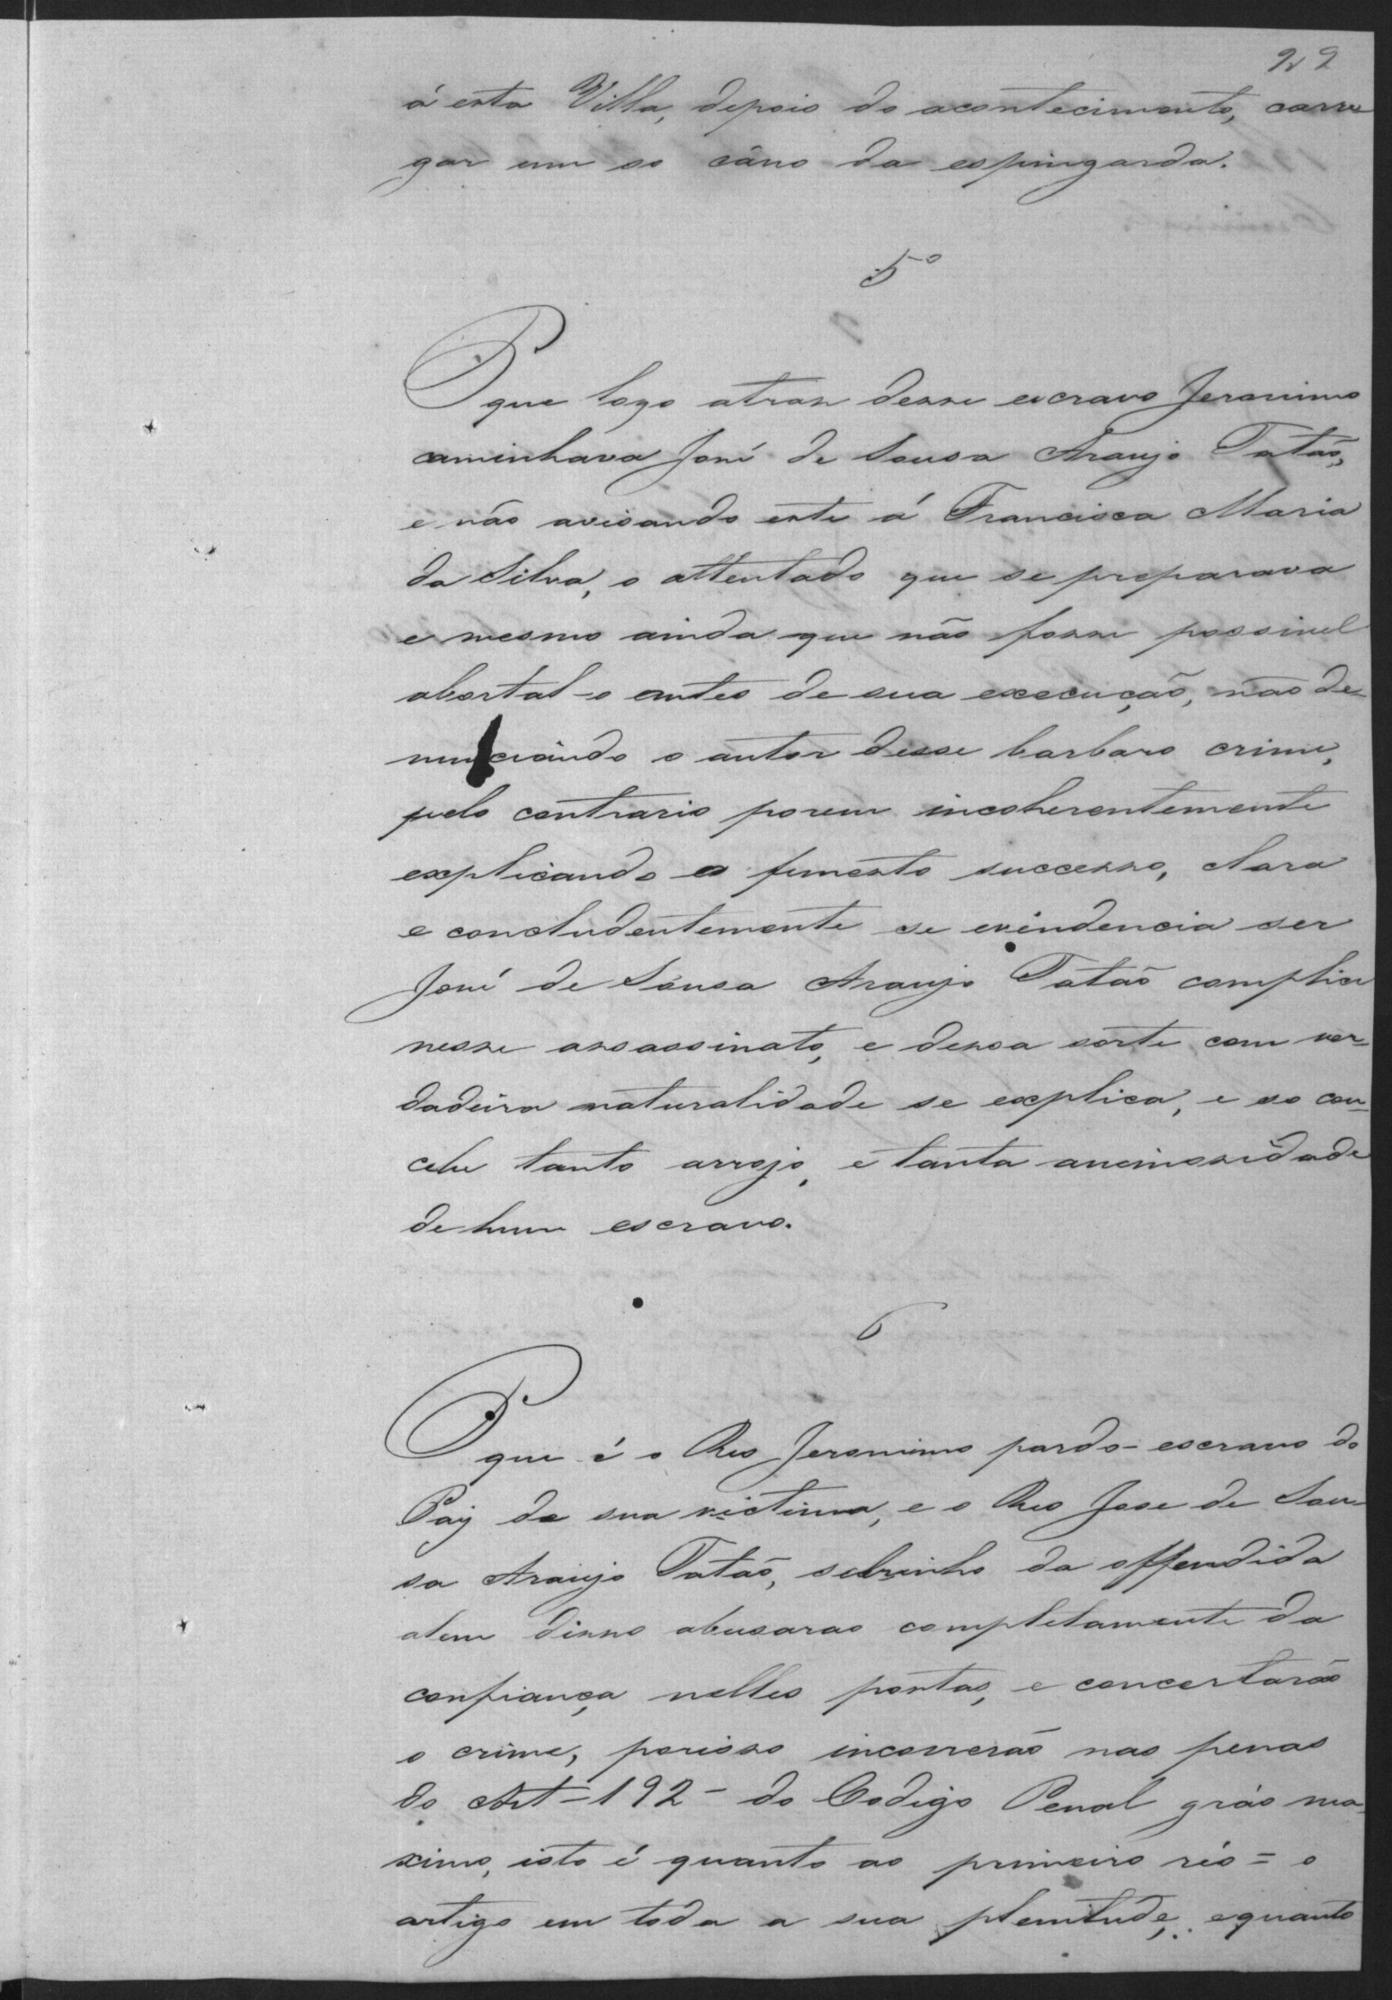 22
á esta Villa, depois do acontecimento, carre
gar um so câno da espingarda.
5º
P que logo atraz desse escravo Jeronimo
caminhava José de Sousa Araujo Tatão,
e não avisando este á Francisca Maria
da Silva, o attentado que se preparava
e mesmo ainda que não fosse possivel
abortal-o antes de sua execução, não de
nunciando o autor desse barbaro crime,
pelo contrario porem incoherentemente
explicando o funesto successo, clara
e concludentemente se evindencia ser
José de Sousa Araujo Tatão complice
nesse assassinato, e dessa sorte com ver-
dadeira naturalidade se explica, e so con-
cebe tanto arrojo, e tanta animosidade
de hum escravo.
6
P que é o Reo Jeronimo pardo - escravo do
Pay de sua victima, e o Reo Jose de Sou
sa Araujo Tatão, sobrinho da offendida
alem disso abusarao completamente da
confiança nelles postas, e concertarão
o crime, porisso incorrerão nas penas
do Art - 192 - do Codigo Penal gráo ma
ximo, isto é quanto ao primeiro réo = o
artigo em toda a sua plenitude, e quanto